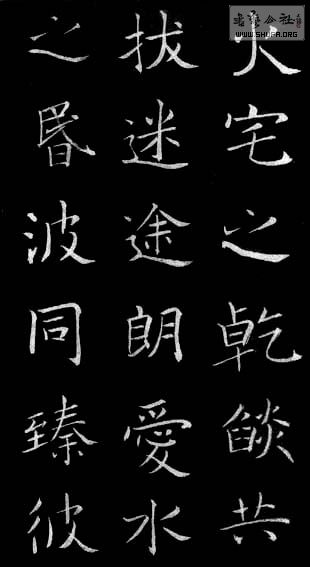 火宅之乾燄共
拔迷途朗愛水
之昬波同臻彼
書藝公社
WWW.SHUFA.ORG